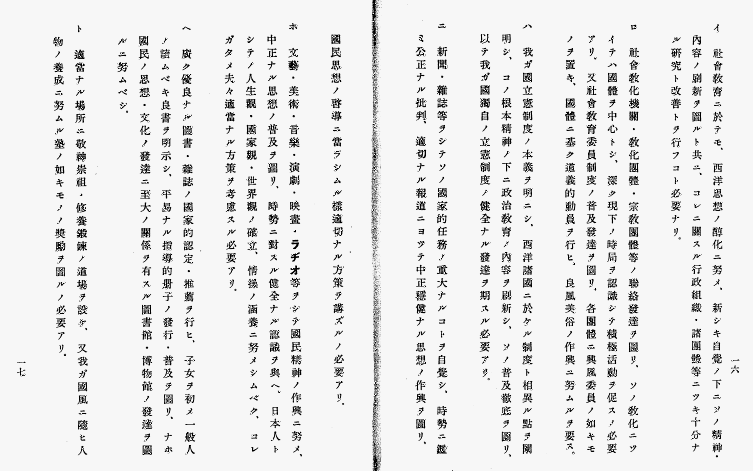 イ 社會教育ニ於テモ、西洋思想ノ醇化ニ努メ、新シキ自覺ノ下ニソノ精神・
內容ノ刷新ヲ圖ルト共ニ、コレニ關スル行政組織・諸團體等ニツキ十分ナ
ル硏究ト改善トヲ行フコト必要ナリ。
ロ 社會敎化機關・敎化團體・宗敎團體等ノ聯絡發達ヲ圖リ、ソノ敎化ニツ
イテハ國體ヲ中心トシ、深ク現下ノ時局ヲ認識シテ積極活動ヲ促スノ必要
アリ、又社會敎育委員制度ノ普及發達ヲ圖リ、各團體ニ興風委員ノ如キモ
ノヲ置キ、國體ニ基ク道義的動員ヲ行ヒ、良風美俗ノ作興ニ努ムルヲ要ス。
ハ 我ガ國立憲制度ノ本義ヲ明ニシ、西洋諸國ニ於ケル制度ト相異ル點ヲ闡
明シ、コノ根本精神ノ下ニ政治敎育ノ內容ヲ刷新シ、ソノ普及徹底ヲ圖リ、
以テ我ガ國獨自ノ立憲制度ノ健全ナル發達ヲ期スル必要アリ。
ニ 新聞・雜誌等ヲシテソノ國家的任務ノ重大ナルコトヲ自覺シ、時勢ニ鑑
ミ公正ナル批判、適切ナル報道ニヨツテ中正穩健ナル思想ノ作興ヲ圖リ、
一六
國民思想ノ啓導ニ當ラシムル樣適切ナル方策ヲ講ズルノ必要アリ。
ホ 文藝・美術・音樂・演劇・映畫・ラヂオ等ヲシテ國民精神ノ作興ニ努メ、
中正ナル思想ノ普及ヲ圖リ、時勢ニ對スル健全ナル認識ヲ與ヘ、日本人ト
シテノ人生觀・國家觀・世界觀ノ確立、情操ノ涵養ニ努メシムベク、コレ
ガタメ夫々適當ナル方策ヲ考慮スル必要アリ。
ヘ 廣ク優良ナル圖書・雜誌ノ國家的認定・推薦ヲ行ヒ、子女ヲ初メ一般人
ノ讀ムベキ良書ヲ明示シ、平易ナル指導的册子ノ發行・普及ヲ圖リ、ナホ
國民ノ思想・文化ノ發達ニ至大ノ關係ヲ有スル圖書館・博物館ノ發達ヲ圖
ルニ努ムベシ。
ト 適當ナル場所ニ敬神崇祖・修養鍛鍊ノ道場ヲ設ケ、又我ガ國風ニ隨ヒ人
物ノ養成ニ努ムル塾ノ如キモノノ奬勵ヲ圖ルノ必要アリ。
一七